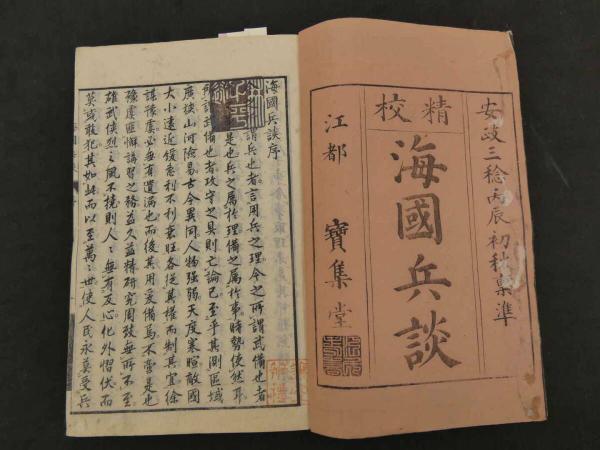 安政三稔丙辰初秋稟準
精校
海國兵談
江都 寶集堂
海國兵談序
謂兵也者言用兵之理今之所謂武備也者
是也兵之属於理備之属於事時勢使然耳
所謂武備也者攻守之具則亡論已至乎其測區域
廣狭山河險易古今異同人物强弱天度寒暄敵國
大小遠近緩急利不利衰旺各從其權而制其宜徐
謀豫虞必無有遺漏也而後其用爰備焉不啻是也
豫虞匪懈講習之務益久益精研究周致無所不至
雄武俠烈之風不撓則人〻無有反心化外慴伏而
莫或敢犯其如此而以至萬〻世使人民永莫受兵